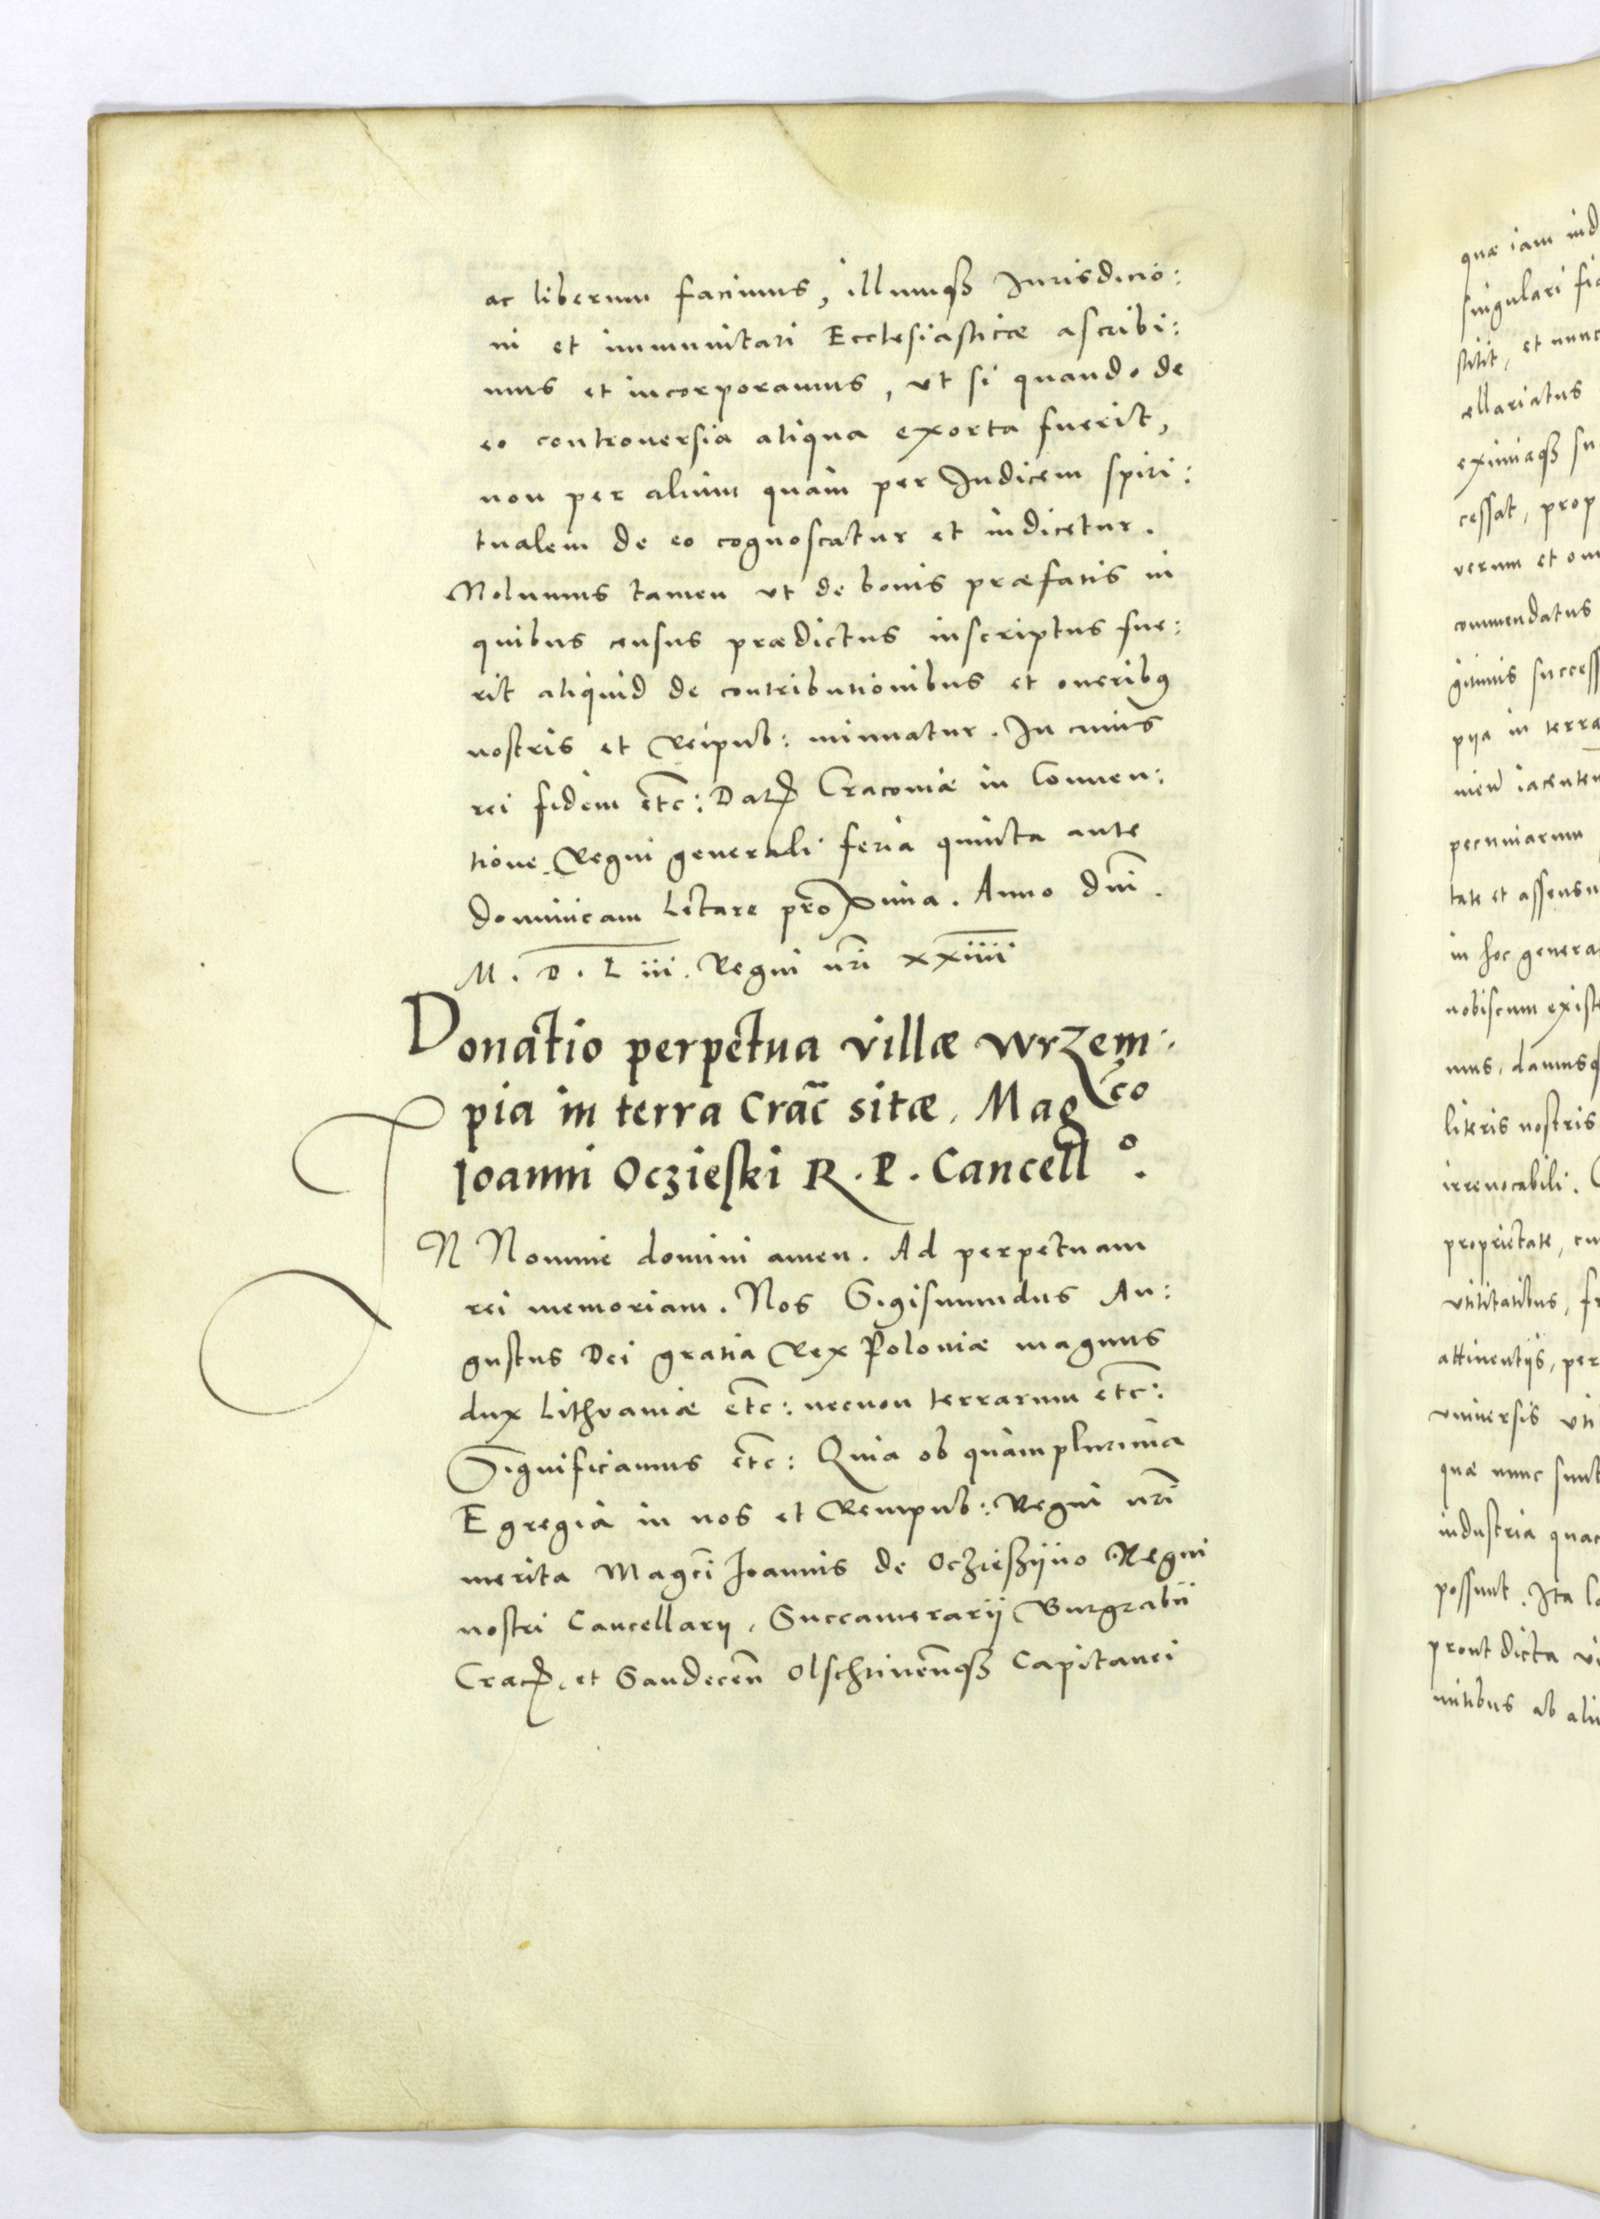 ac liberum facimus, illumq3 Jurisdictio:
ni et immunitati Ecclesiasticæ ascribi:
mus et incorporamus, vt si quando de
eo controuersia aliqua exorta fuerit,
non per alium quàm per Judicem spiri:
tualem de eo cognoscatur et iudicetur.
Nolumus tamen vt de bonis præfatis in
quibus census prædictus inscriptus fue:
rit aliquid de contributionibus et oneribus
nostris et Reipub: minuatur. In cuius
rei fidem etc: Dat Cracouiæ in Conuen:
tione Regni generali feria quinta ante
dominicam Letare proxima. Anno dni.
M. D. L iii. Regni nri xxiiii
Donatio perpetua villæ Wrzem:
pia in terra Crac sitæ, Magco
Joanni Oczieski R. P. Cancello.
IN Nomine domini amen. Ad perpetuam
rei memoriam. Nos Sigismundus Au:
gustus Dei gratia Rex Poloniæ magnus
dux Lithvaniæ etc: necnon terrarum etc:
Significamus etc: Quia ob quàmplurima
Egregia in nos et Rempub: Regni nri
merita Magci Joannis de Oczieszÿno Regni
nostri Cancellarij, Succamerarij Burgrabii
Crac, et Sandecen Olschtinenq3 Capitanei
quæ iam ind
singulari fid
stitit, et nunc
cellariatus
eximiaq3 su
cessat, prop
verum et om
commendatus
gitimis success
pia in terra
men iacentem
pecuniarum
tate et assensu
in hoc genera
nobiscum existe
mus, damusq
literis nostris
irreuocabili.
proprietate, cu
vtilitatibus, fr
attinentijs, per
vniuersis vti
quæ nunc sunt
industria quac
possunt. Ita la
prout dicta vi
mitibus ab aliis